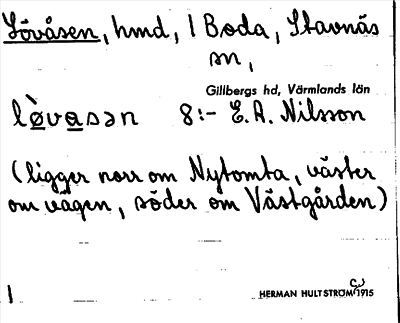 Lövåsen, hmd, 1 Boda, Stavnäs
sn,
Gillbergs hd, Värmlands län
lø̀vasən 8:- E. A. Nilsson
(ligger norr om Nytomta, väster
om vägen, söder om Västgården)
1
HERMAN HULTSTRÖM 1915